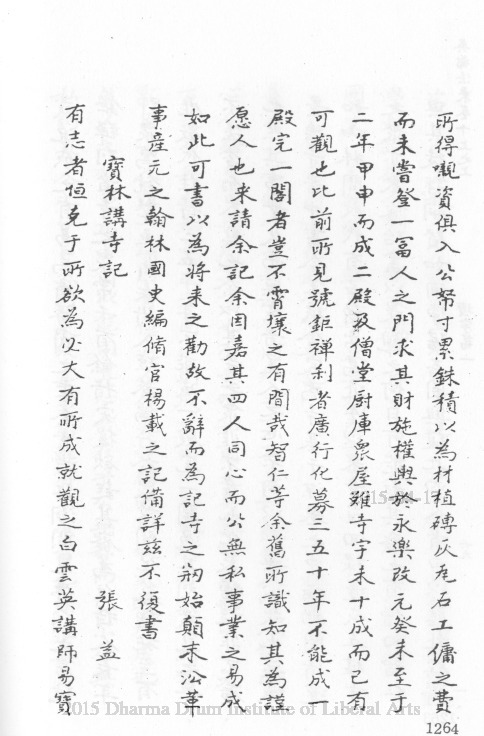 所得嚫資俱入公帑寸累銖積以為材植磚灰瓦石工傭之費
而未嘗登一冨人之門求其財施權輿於永樂改元癸未至于
二年甲申而成二殿及僧堂厨庫衆屋雖寺宇未十成而已有
可觀也比前所見號鉅禅刹者廣行化募三五十年不能成一
殿完一閣者豈不霄壤之有間哉智仁等余舊所識知其為謹
愿人也来請余記余因嘉其四人同心而公無私事業之易成
如此可書以為将来之勸故不辭而為記寺之刱始顛末沿革
事産元之翰林國史編脩官楊載之記備詳兹不復書
寶林講寺記　張益
有志者恒克于所欲為必大有所成就觀之白雲英講師易寶
2015 Dharma Drum Institute of Liberal Arts
1264